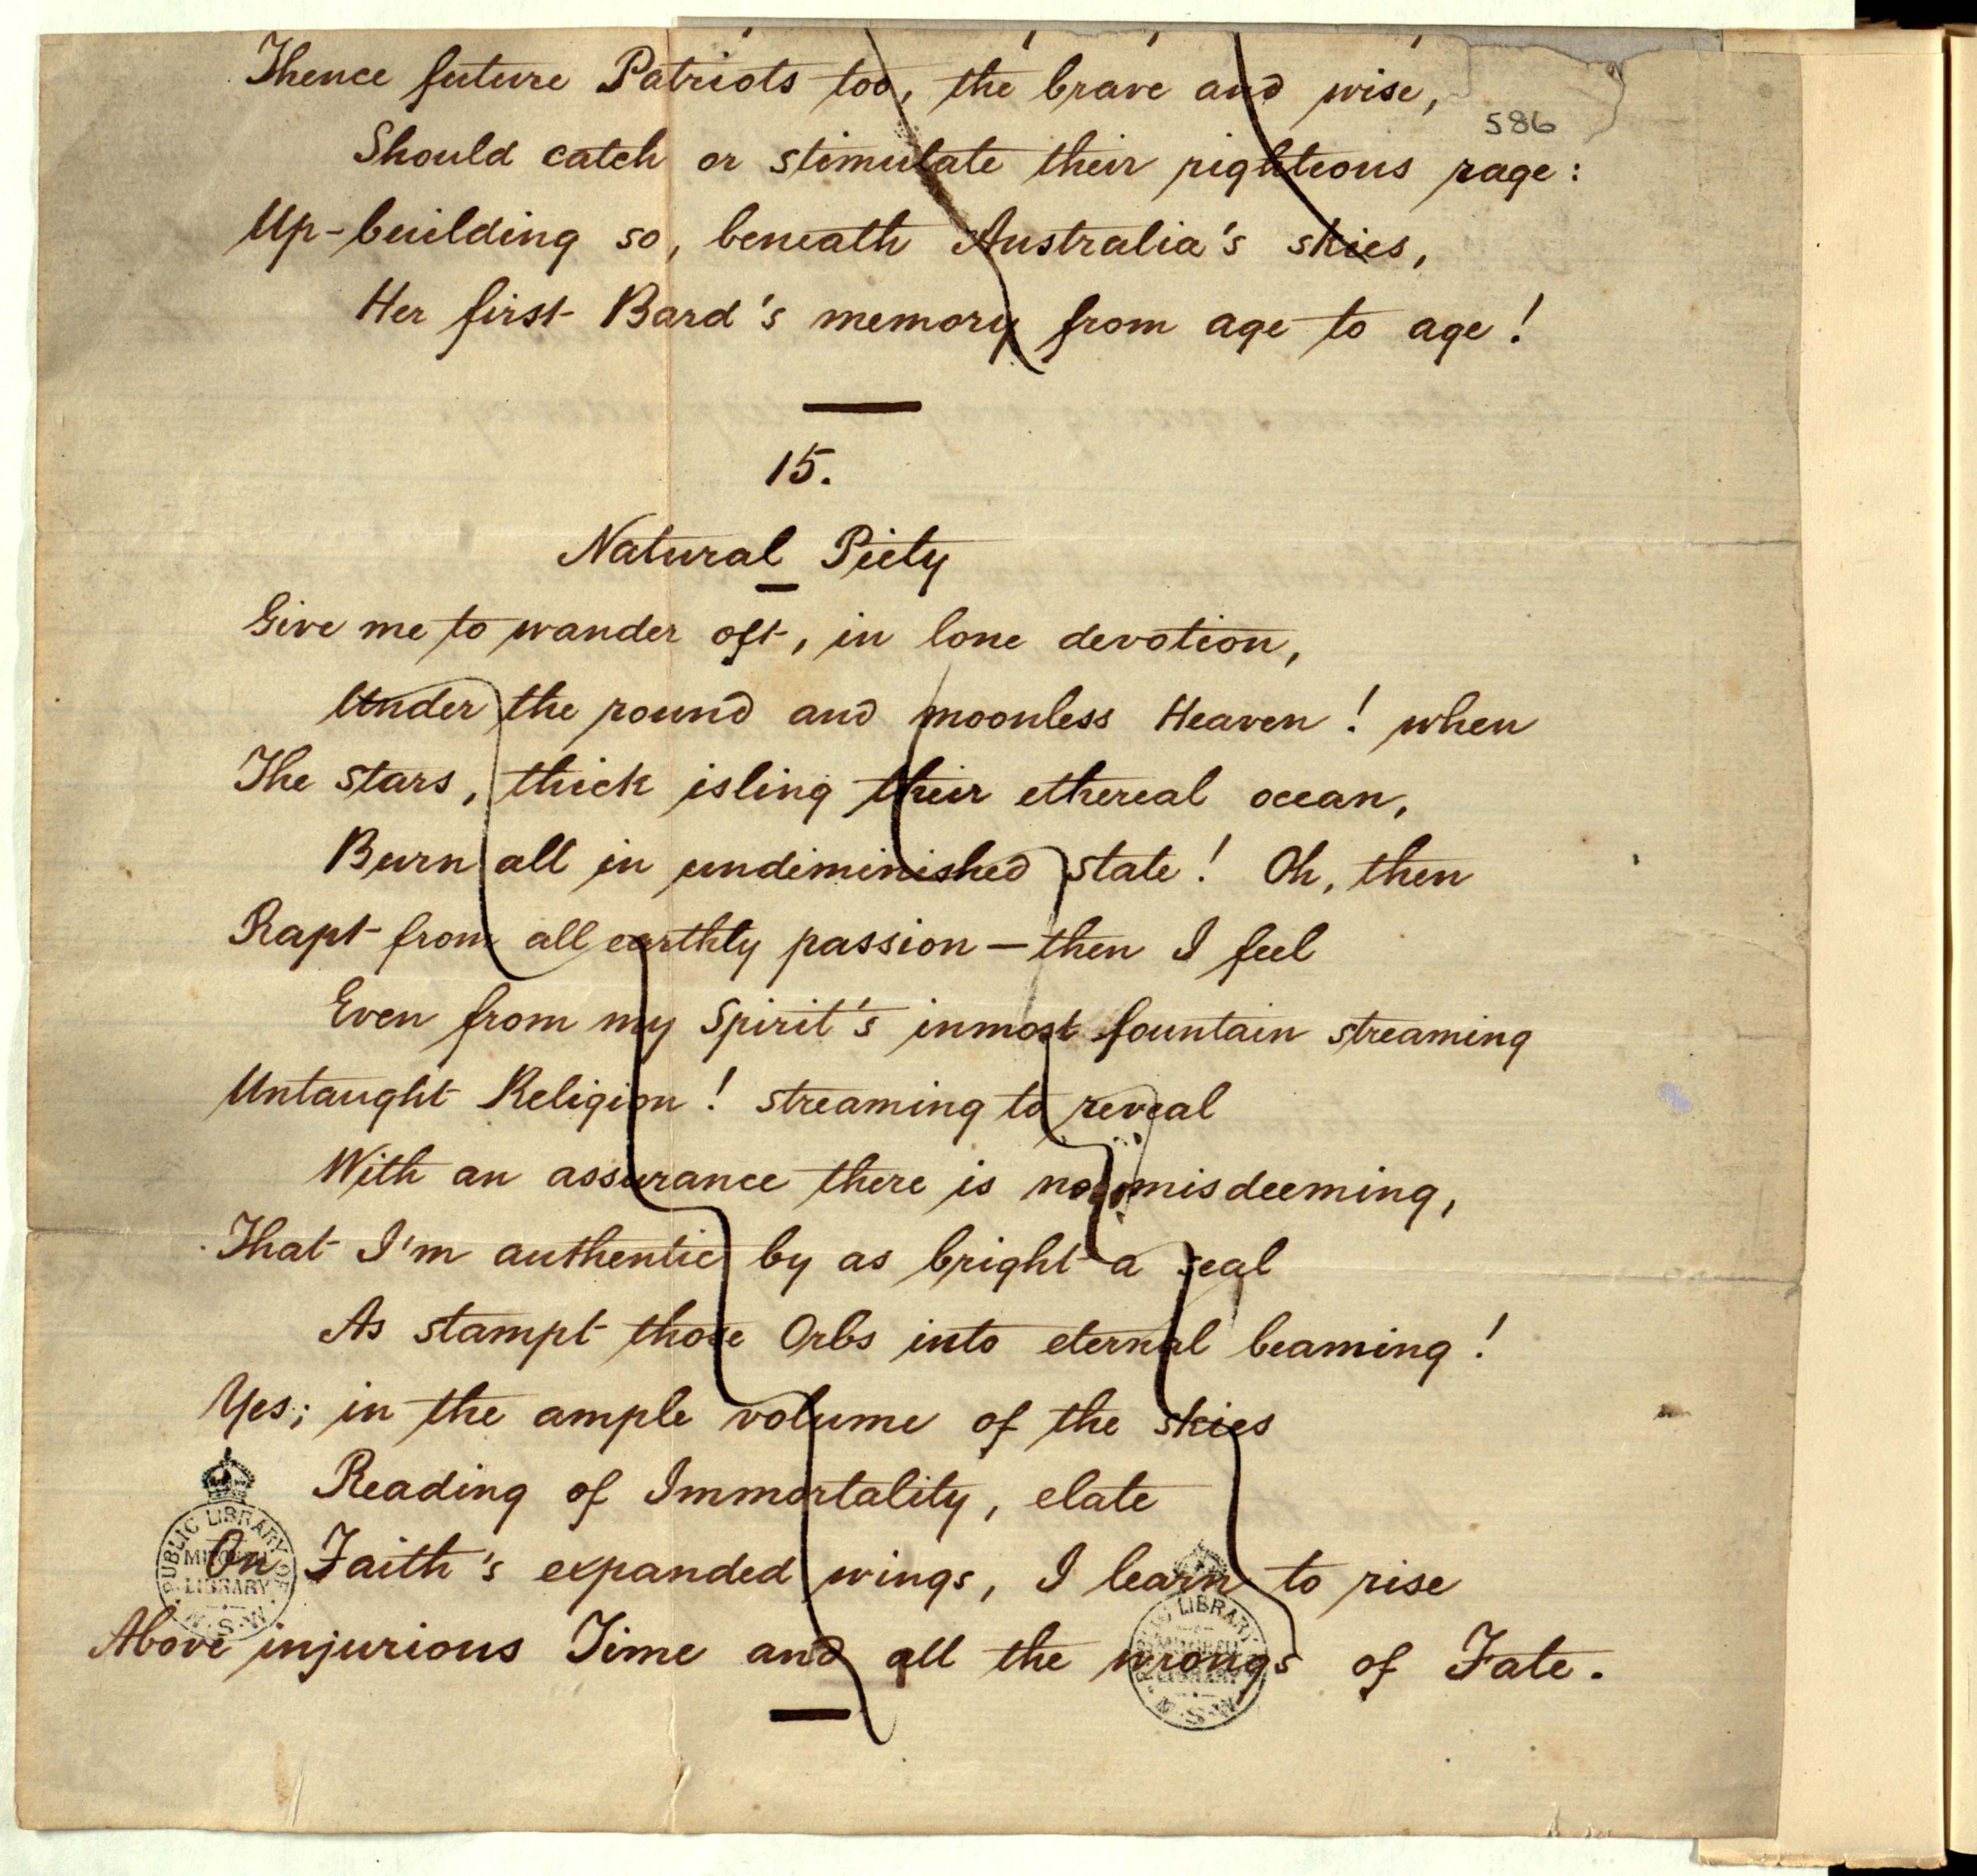 Thence future Patriots too, the brave and wise,
586
Should catch or stimulate their righteous rage:
Up-building so, beneath Australia's skies,
Her first Bard's memory from age to age!
15.
Natural Piety
Give me to wander oft, in lone devotion,
Under the round and moonless Heaven! when
The stars, thick isling their ethereal ocean,
Burn all in undiminished state! Oh, then
Rapt from all earthly passion — then I feel
Even from my Spirit's inmost fountain streaming
Untaught Religion! streaming to reveal
With an assurance there is no misdeeming,
That I'm authentic by as bright a seal
As stampt those Orbs into eternal beaming!
Yes; in the ample volume of the skies
Reading of Immortality, elate
On Faith's expanded wings, I learn to rise
Above injurious Time and all the wrongs of Fate.
PUBLIC LIBRARY OF N.S.W.
MITCHELL LIBRARY
PUBLIC LIBRARY OF N.S.W.
MITCHELL LIBRARY